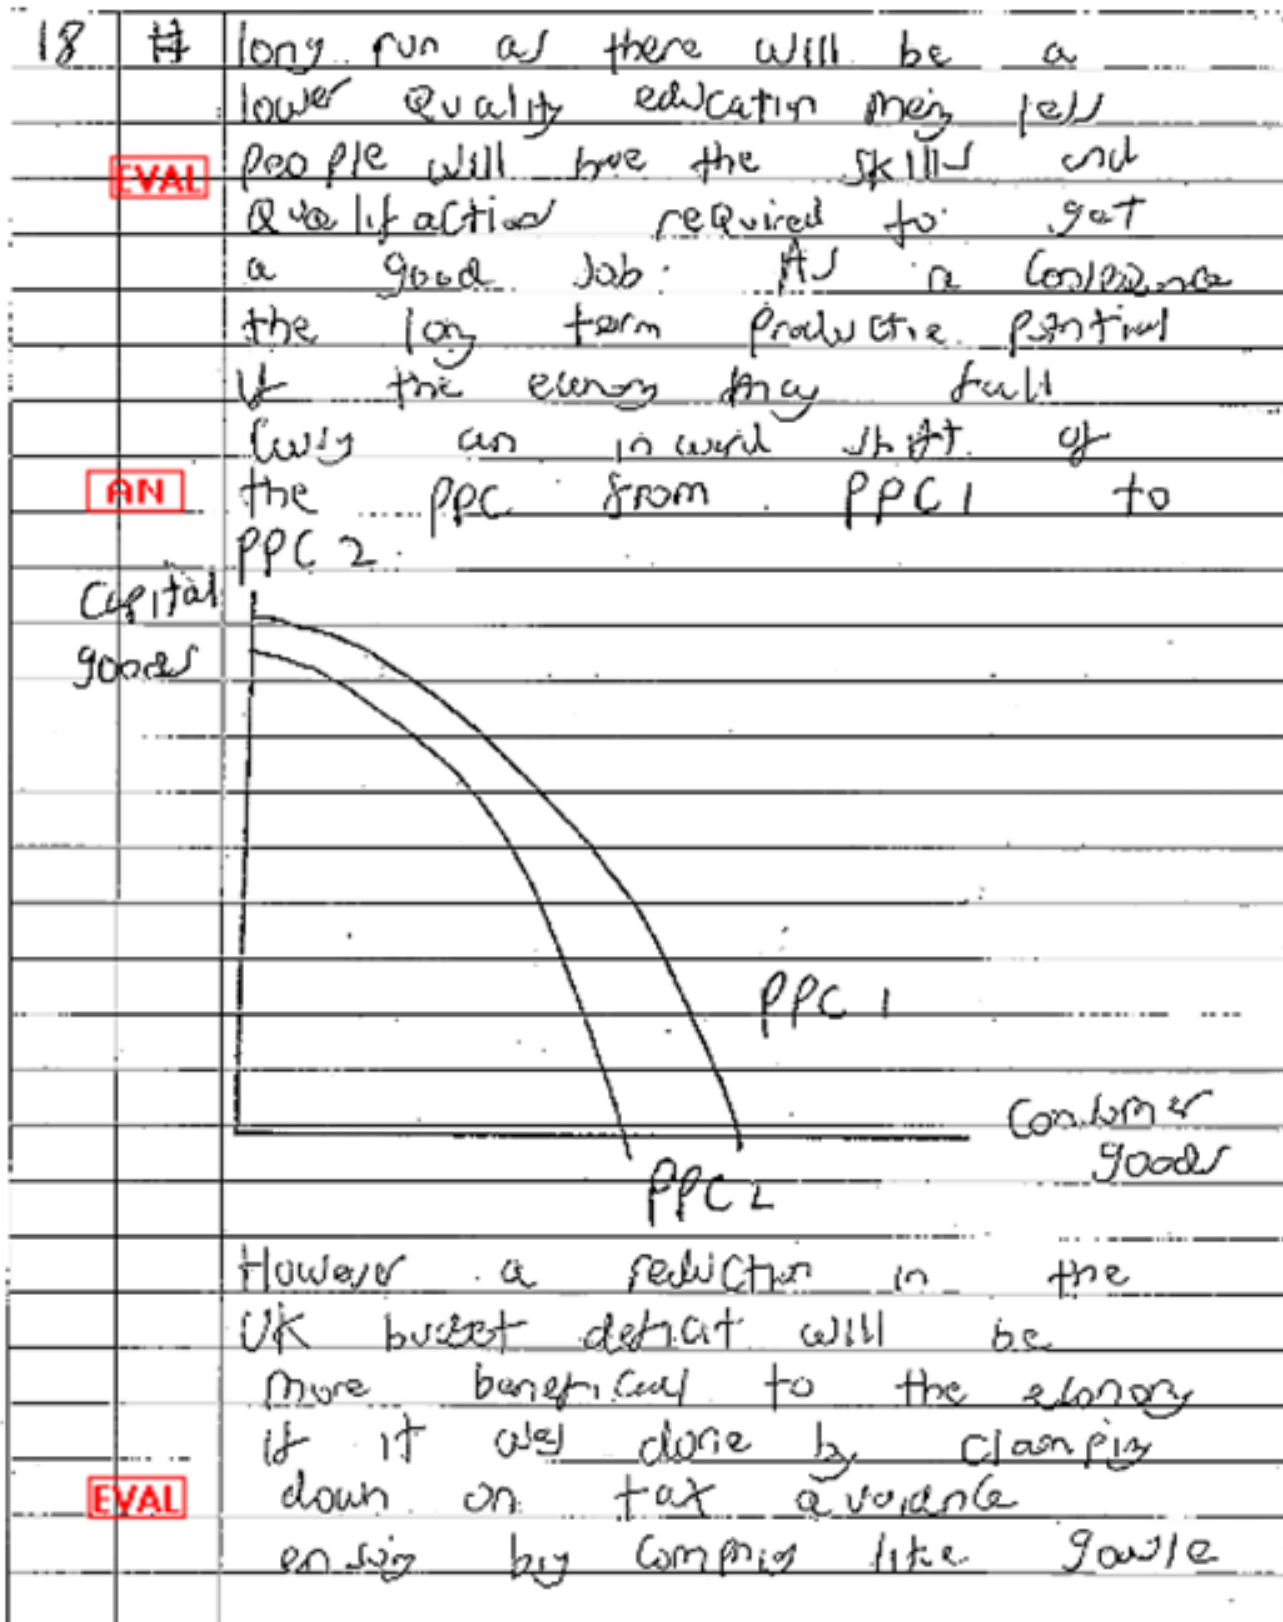 18 long run as there will be a
lower Quality education meig less
EVAL people will have the skills and
Qualifaction required to get
a good Job. As a
the long term Productive
of the may fall
an inward shift of
AN the PPC from PPC1 to
PPC 2.
Capital
goods
PPC 1
Consumer
goods
PPC 2
However a reduction in the
UK budget deficit will be
more benefical to the
if it was done by clamping
down on tax avoidance
EVAL
big like google